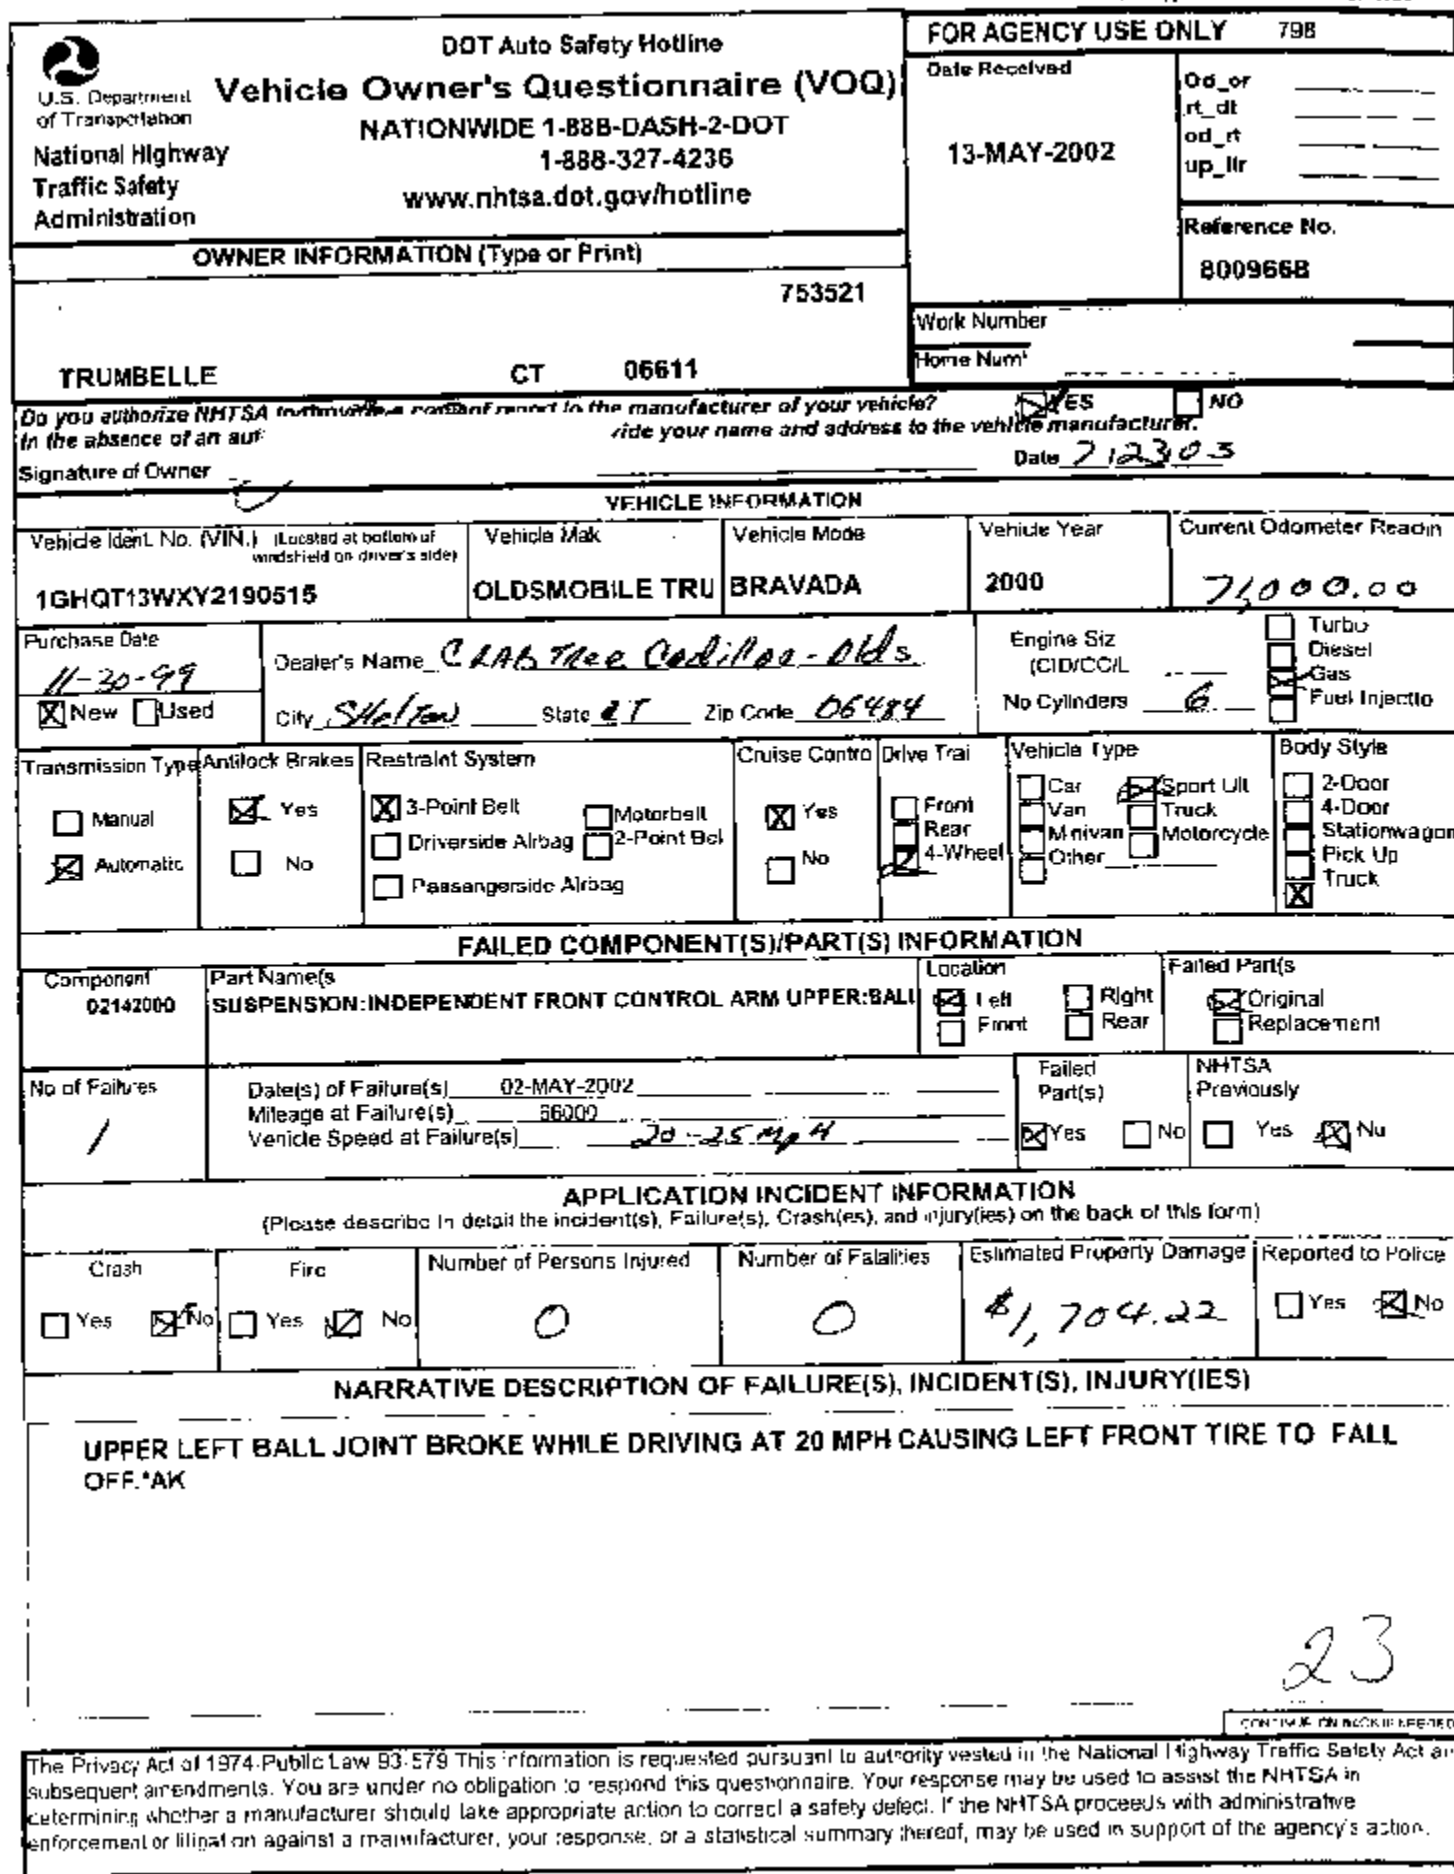 DOT Auto Safety Hotline
Vehicle Owner's Questionnaire (VOQ)
NATIONWIDE 1-888-DASH-2-DOT
1-888-327-4236
www.nhtsa.dot.gov/hotline
U.S. Department
of Transportation
National Highway
Traffic Safety
Administration
FOR AGENCY USE ONLY 798
Date Received
13-MAY-2002
Od_or
rt_dt
od_rt
up_ltr
Reference No.
8009668
OWNER INFORMATION (Type or Print)
753521
TRUMBELLE CT 06611
Work Number
Home Num
Do you authorize NHTSA to provide a copy of report to the manufacturer of your vehicle? YES NO
In the absence of an aut ride your name and address to the vehicle manufacturer.
Signature of Owner Date 7/23/03
VEHICLE INFORMATION
Vehicle Ident. No. (VIN.) (Located at bottom of
windshield on driver's side)
1GHQT13WXY2190515
Vehicle Mak
OLDSMOBILE TRU
Vehicle Mode
BRAVADA
Vehicle Year
2000
Current Odometer Readin
71,000.00
Purchase Date
11-30-99
New Used
Dealer's Name CRABTree Cadillac-Olds
City SHelTon State CT Zip Code 06484
Engine Siz
(CID/CC/L
No Cylinders 6
Turbo
Diesel
Gas
Fuel Injectio
Transmission Type
Manual
Automatic
Antilock Brakes
Yes
No
Restraint System
3-Point Belt Motorbelt
Driverside Airbag 2-Point Bel
Passangerside Airbag
Cruise Contro
Yes
No
Drive Trai
Front
Rear
4-Wheel
Vehicle Type
Car Sport Ult
Van Truck
Minivan Motorcycle
Other
Body Style
2-Door
4-Door
Stationwagon
Pick Up
Truck
FAILED COMPONENT(S)/PART(S) INFORMATION
Component
02142000
Part Name(s
SUSPENSION:INDEPENDENT FRONT CONTROL ARM UPPER:BALL
Location
Left Right
Front Rear
Failed Part(s
Original
Replacement
No of Failures
1
Date(s) of Failure(s) 02-MAY-2002
Mileage at Failure(s) 66000
Vehicle Speed at Failure(s) 20-25 MpH
Failed
Part(s)
Yes No
NHTSA
Previously
Yes No
APPLICATION INCIDENT INFORMATION
(Please describe in detail the incident(s), Failure(s), Crash(es), and injury(ies) on the back of this form)
Crash
Yes No
Fire
Yes No
Number of Persons Injured
0
Number of Fatalities
0
Estimated Property Damage
$1,704.22
Reported to Police
Yes No
NARRATIVE DESCRIPTION OF FAILURE(S), INCIDENT(S), INJURY(IES)
UPPER LEFT BALL JOINT BROKE WHILE DRIVING AT 20 MPH CAUSING LEFT FRONT TIRE TO FALL
OFF.*AK
23
CONTINUE ON BACK IF NEEDED
The Privacy Act of 1974-Public Law 93-579 This information is requested pursuant to authority vested in the National Highway Traffic Safety Act an
subsequent amendments. You are under no obligation to respond this questionnaire. Your response may be used to assist the NHTSA in
determining whether a manufacturer should take appropriate action to correct a safety defect. If the NHTSA proceeds with administrative
enforcement or litigation against a manufacturer, your response, or a statistical summary thereof, may be used in support of the agency's action.